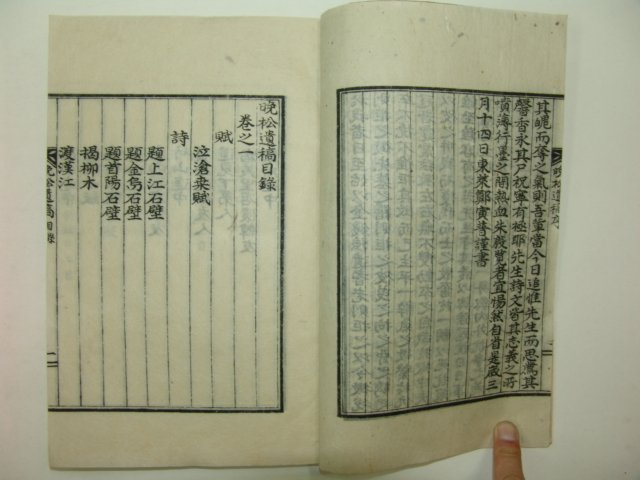 晩松遺稿序
其脆而奪之氣則吾輩當今日追惟先生而思薦其
馨香永其尸祝寧有極耶先生詩文皆其志義之所
噴薄行墨之間熱血朱殷覽者宜惕然自首是歲三
月十四日東萊鄭寅普謹書
晩松遺稿目錄
卷之一
賦
泣滄桑賦
詩
題上江石壁
題金烏石壁
題首陽石壁
揭柳木
渡漢江
晩松遺稿目錄
一